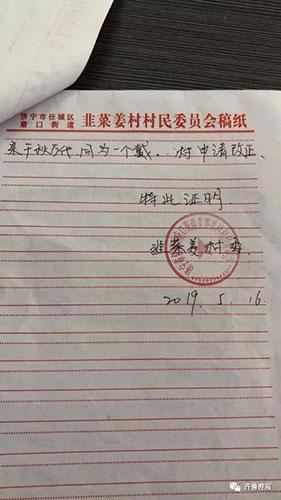 济宁市任城区
唐口街道 韭菜姜村村民委员会稿纸
于秋万代同为一个戴。村申请改正、
特此证明
韭菜姜村委.
2019.5.16.
齐鲁晚报